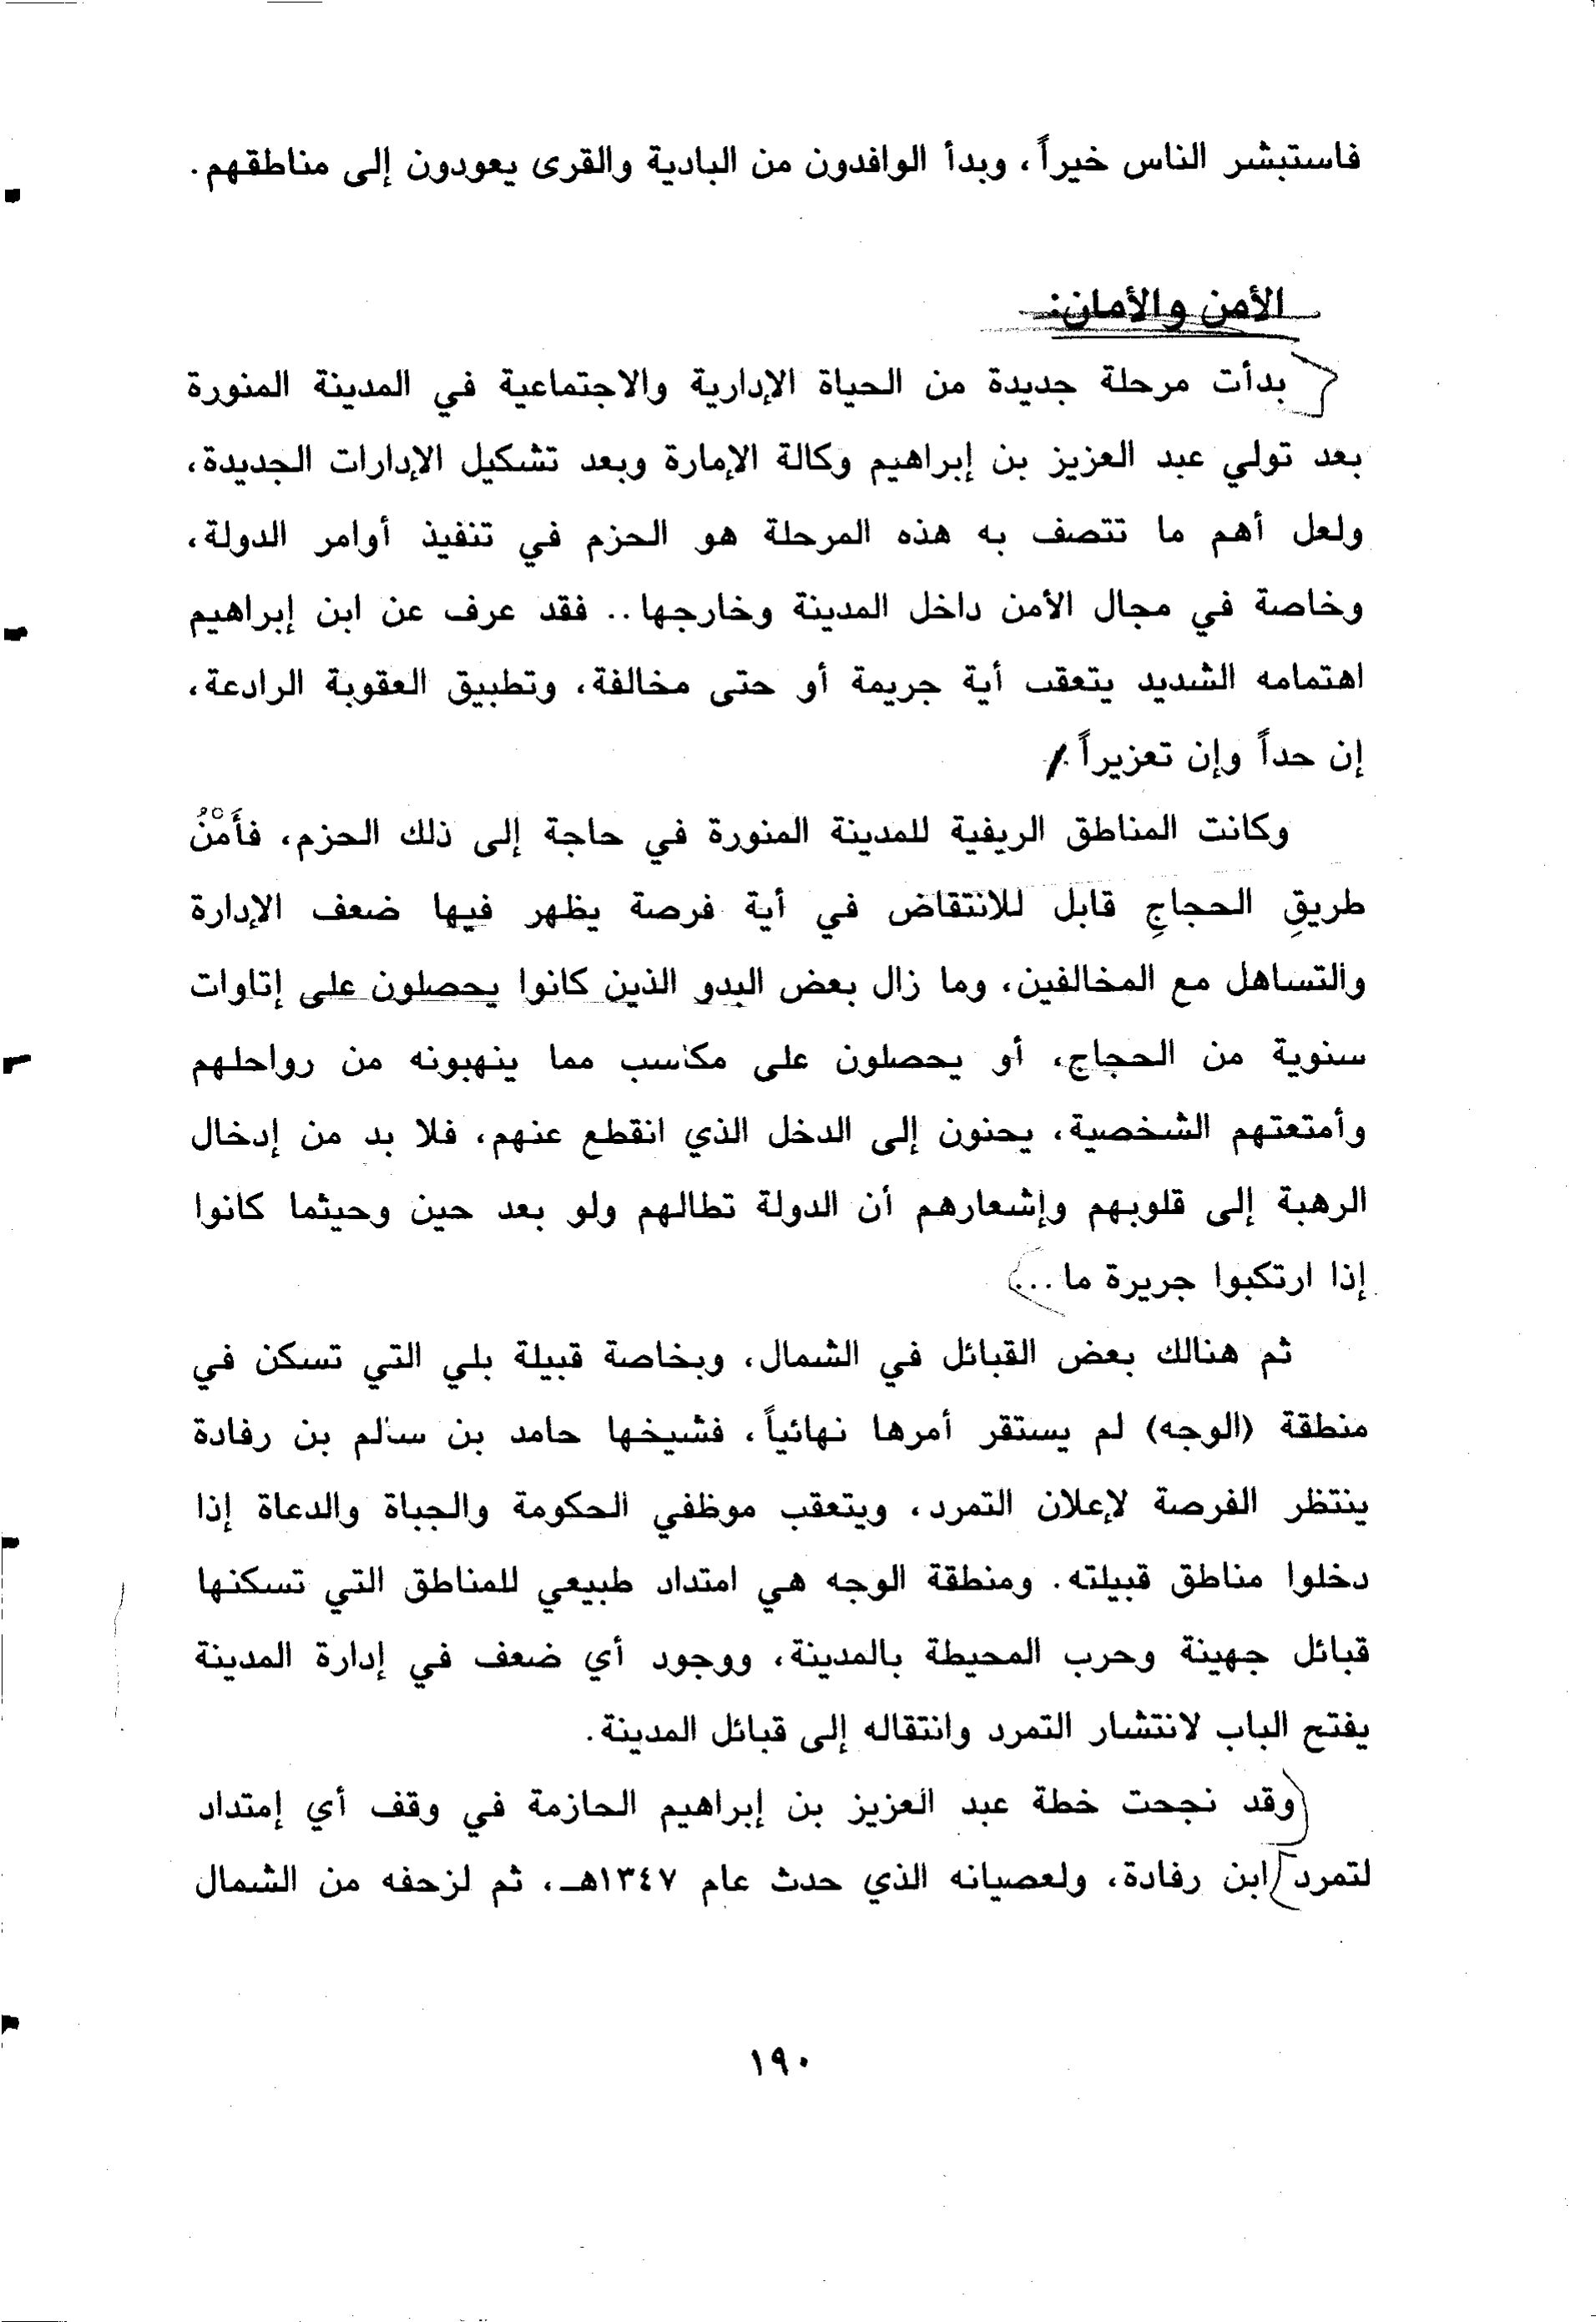 فاستبشر الناس خيراً، وبدأ الوافدون من البادية والقرى يعودون إلى مناطقهم.
الأمن والأمان:
بدأت مرحلة جديدة من الحياة الإدارية والاجتماعية في المدينة المنورة
بعد تولي عبد العزيز بن إبراهيم وكالة الإمارة وبعد تشكيل الإدارات الجديدة،
ولعل أهم ما تتصف به هذه المرحلة هو الحزم في تنفيذ أوامر الدولة،
وخاصة في مجال الأمن داخل المدينة وخارجها.. فقد عرف عن ابن إبراهيم
اهتمامه الشديد يتعقب أية جريمة أو حتى مخالفة، وتطبيق العقوبة الرادعة،
إن حداً وإن تعزيراً.
وكانت المناطق الريفية للمدينة المنورة في حاجة إلى ذلك الحزم، فأَمْنُ
طريقِ الحجاجِ قابل للانتقاض في أية فرصة يظهر فيها ضعف الإدارة
والتساهل مع المخالفين، وما زال بعض البدو الذين كانوا يحصلون على إتاوات
سنوية من الحجاج، أو يحصلون على مكاسب مما ينهبونه من رواحلهم
وأمتعتهم الشخصية، يحنون إلى الدخل الذي انقطع عنهم، فلا بد من إدخال
الرهبة إلى قلوبهم وإشعارهم أن الدولة تطالهم ولو بعد حين وحيثما كانوا
إذا ارتكبوا جريرة ما...
ثم هنالك بعض القبائل في الشمال، وبخاصة قبيلة بلي التي تسكن في
منطقة (الوجه) لم يستقر أمرها نهائياً، فشيخها حامد بن سالم بن رفادة
ينتظر الفرصة لإعلان التمرد، ويتعقب موظفي الحكومة والجباة والدعاة إذا
دخلوا مناطق قبيلته. ومنطقة الوجه هي امتداد طبيعي للمناطق التي تسكنها
قبائل جهينة وحرب المحيطة بالمدينة، ووجود أي ضعف في إدارة المدينة
يفتح الباب لانتشار التمرد وانتقاله إلى قبائل المدينة.
وقد نجحت خطة عبد العزيز بن إبراهيم الحازمة في وقف أي إمتداد
لتمرد ابن رفادة، ولعصيانه الذي حدث عام ١٣٤٧هـ، ثم لزحفه من الشمال
١٩٠